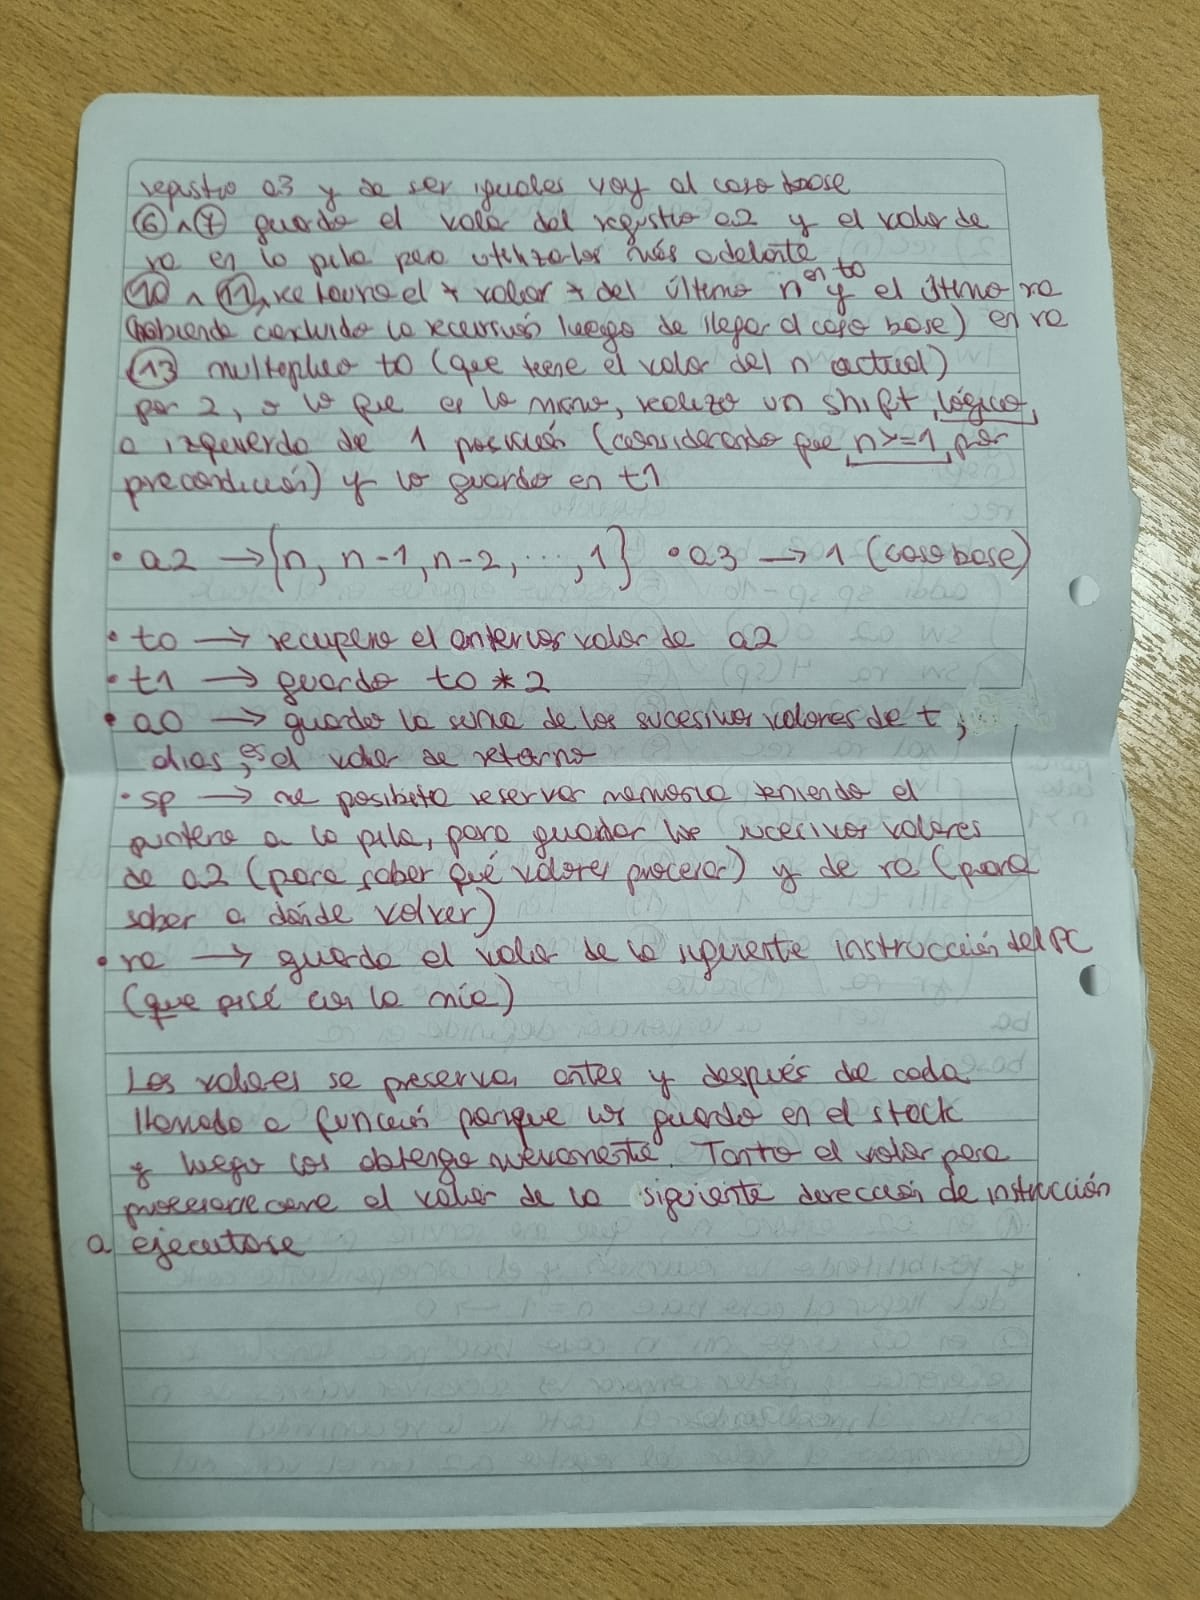 registro a3 y de ser iguales voy al caso base
⑥ ^ ⑦ guardo el valor del registro a2 y el valor de
ra en la pila para utilizarlos más adelante
⑩ ^ ⑪ retorno el * valor * del último n en t0 y el último ra
(habiendo concluido la recursión luego de llegar al caso base) en ra
⑬ multiplico t0 (que tiene el valor del n actual)
por 2, o lo que es lo mismo, realizo un shift lógico
a izquierda de 1 posición (considerando que n>=1 por
precondición) y lo guardo en t1
• a2 → {n, n-1, n-2, ..., 1} • a3 → 1 (caso base)
• t0 → recupero el anterior valor de a2
• t1 → guardo t0 * 2
• a0 → guardo la suma de los sucesivos valores de t,
es el valor de retorno
• sp → me posibilita reservar memoria teniendo el
puntero a la pila, para guardar los sucesivos valores
de a2 (para saber qué valores procesar) y de ra (para
saber a dónde volver)
• ra → guarda el valor de la siguiente instrucción del PC
(que pisé con la mía)
Los valores se preservan antes y después de cada
llamado a función porque los guardo en el stack
y luego los obtengo nuevamente. Tanto el valor para
el valor de la siguiente dirección de instrucción
a ejecutarse